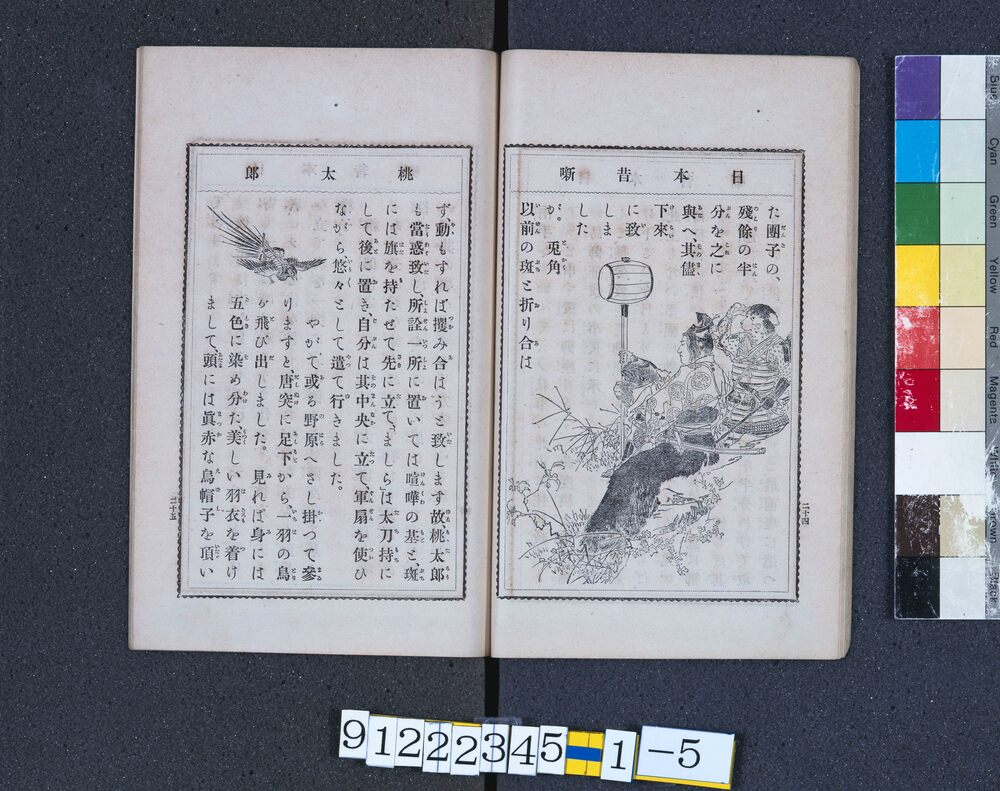 日本昔噺
た團子の、
殘餘の半
分を之に
與へ其儘
下來
に致
しま
した
が。兎角
以前の斑と折り合は
二十四
桃太郎
ず、動もすれば攫み合はうと致します故桃太郎
も當惑致し、所詮一所に置いては喧嘩の基と、斑
には旗を持たせて先に立て、ましらは太刀持に
して後に置き、自分は其中央に立て、軍扇を使ひ
ながら悠々として進て行きました。
やがて或る野原へさし掛つて參
りますと唐突に足下から、一羽の鳥
が飛び出しました。見れば身には
五色に染め分た、美しい羽衣を着け
まして、頭には眞赤な烏帽子を頂い
二十五
91222345=1-5
Blue
Cyan
Green
Yellow
Red
Magenta
White
Brown
Black